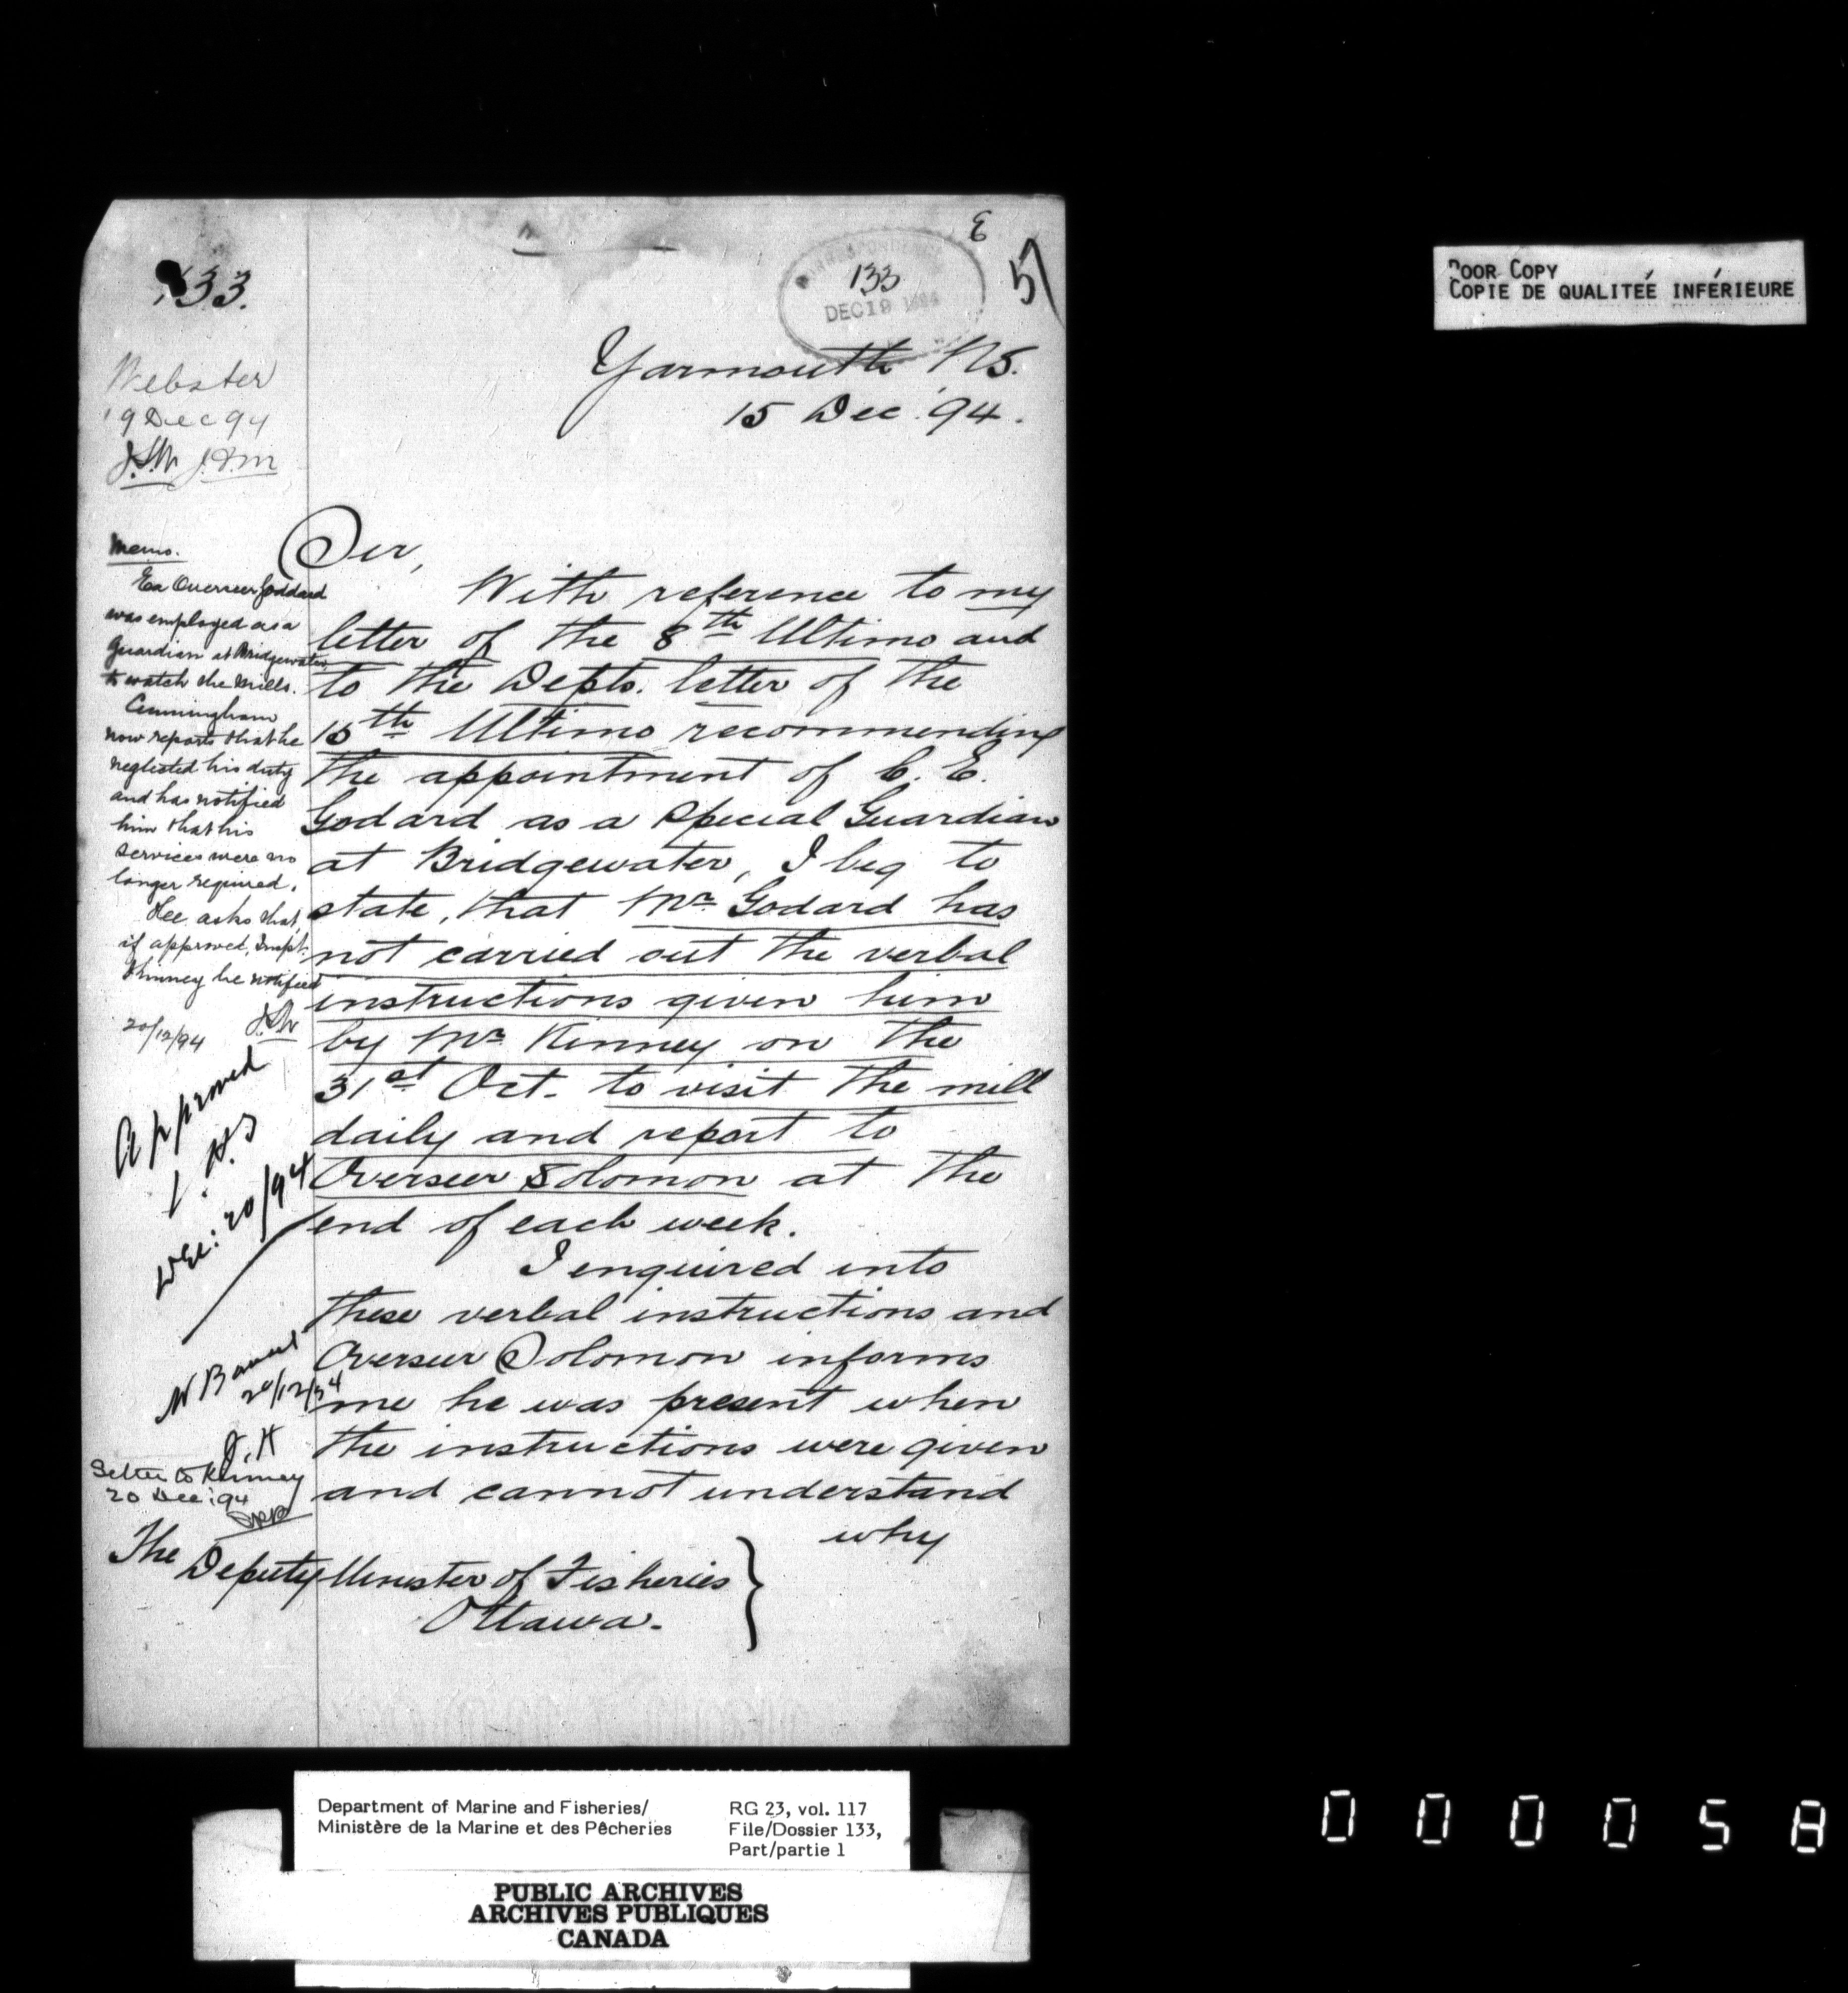 E
133.
133
DEC 19 1894
57
Yarmouth NS.
15 Dec. '94.
Webster
19 Dec 94
Sir,
With reference to my
letter of the 8th Ultimo and
to the Depts. letter of the
15th Ultimo recommending
the appointment of C. E.
Godard as a Special Guardian
at Bridgewater, I beg to
state, that Mr. Godard has
not carried out the verbal
instructions given him
by Mr. Kinney on the
31st Oct. to visit the mill
daily and report to
Overseer Solomon at the
end of each week.
I enquired into
these verbal instructions and
Overseer Solomon informs
me he was present when
the instructions were given
and cannot understand
why
The Deputy Minister of Fisheries
Ottawa.
Memo.
Ex Overseer Goddard
was employed as a
Guardian at Bridgewater,
to watch the mills.
Cunningham
now reports that he
neglected his duty
and has notified
him that his
services were no
longer required.
He asks that,
if approved, Inspt.
Kinney be notified
20/12/94
Approved
Dec: 20/94
20/12/94
Letter to Kinney
20 Dec: 94
POOR COPY
COPIE DE QUALITÉE INFÉRIEURE
Department of Marine and Fisheries/
Ministère de la Marine et des Pêcheries
RG 23, vol. 117
File/Dossier 133,
Part/partie 1
PUBLIC ARCHIVES
ARCHIVES PUBLIQUES
CANADA
000058